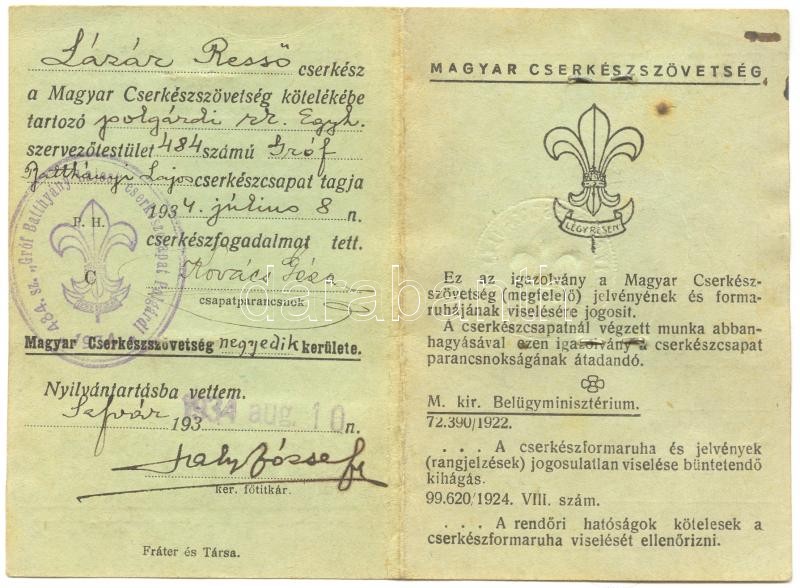 Lázár Resső cserkész
a Magyar Cserkészszövetség kötelékébe
tartozó polgárdi rk. Egyh.
szervezőtestület 484 számú Gróf
Batthányi Lajos cserkészcsapat tagja
1934. július 8 n.
P. H.
cserkészfogadalmat tett.
C Kovács Géza
csapatparancsnok.
484. sz. „Gróf Batthyány cserkészcsapat Polgárdi
Magyar Cserkészszövetség negyedik kerülete.
Nyilvántartásba vettem.
193 1934 aug. 10 n.
József
ker. főtitkár.
Fráter és Társa.
MAGYAR CSERKÉSZSZÖVETSÉG
LÉGY RÉSEN
Ez az igazolvány a Magyar Cserkész-
szövetség (megfelelő) jelvényének és forma-
ruhájának viselésére jogosit.
A cserkészcsapatnál végzett munka abban-
hagyásával ezen igazolvány a cserkészcsapat
parancsnokságának átadandó.
M. kir. Belügyminisztérium.
72.390/1922.
. . . A cserkészformaruha és jelvények
(rangjelzések) jogosulatlan viselése büntetendő
kihágás.
99.620/1924. VIII. szám.
. . . A rendőri hatóságok kötelesek a
cserkészformaruha viselését ellenőrizni.
darabanth